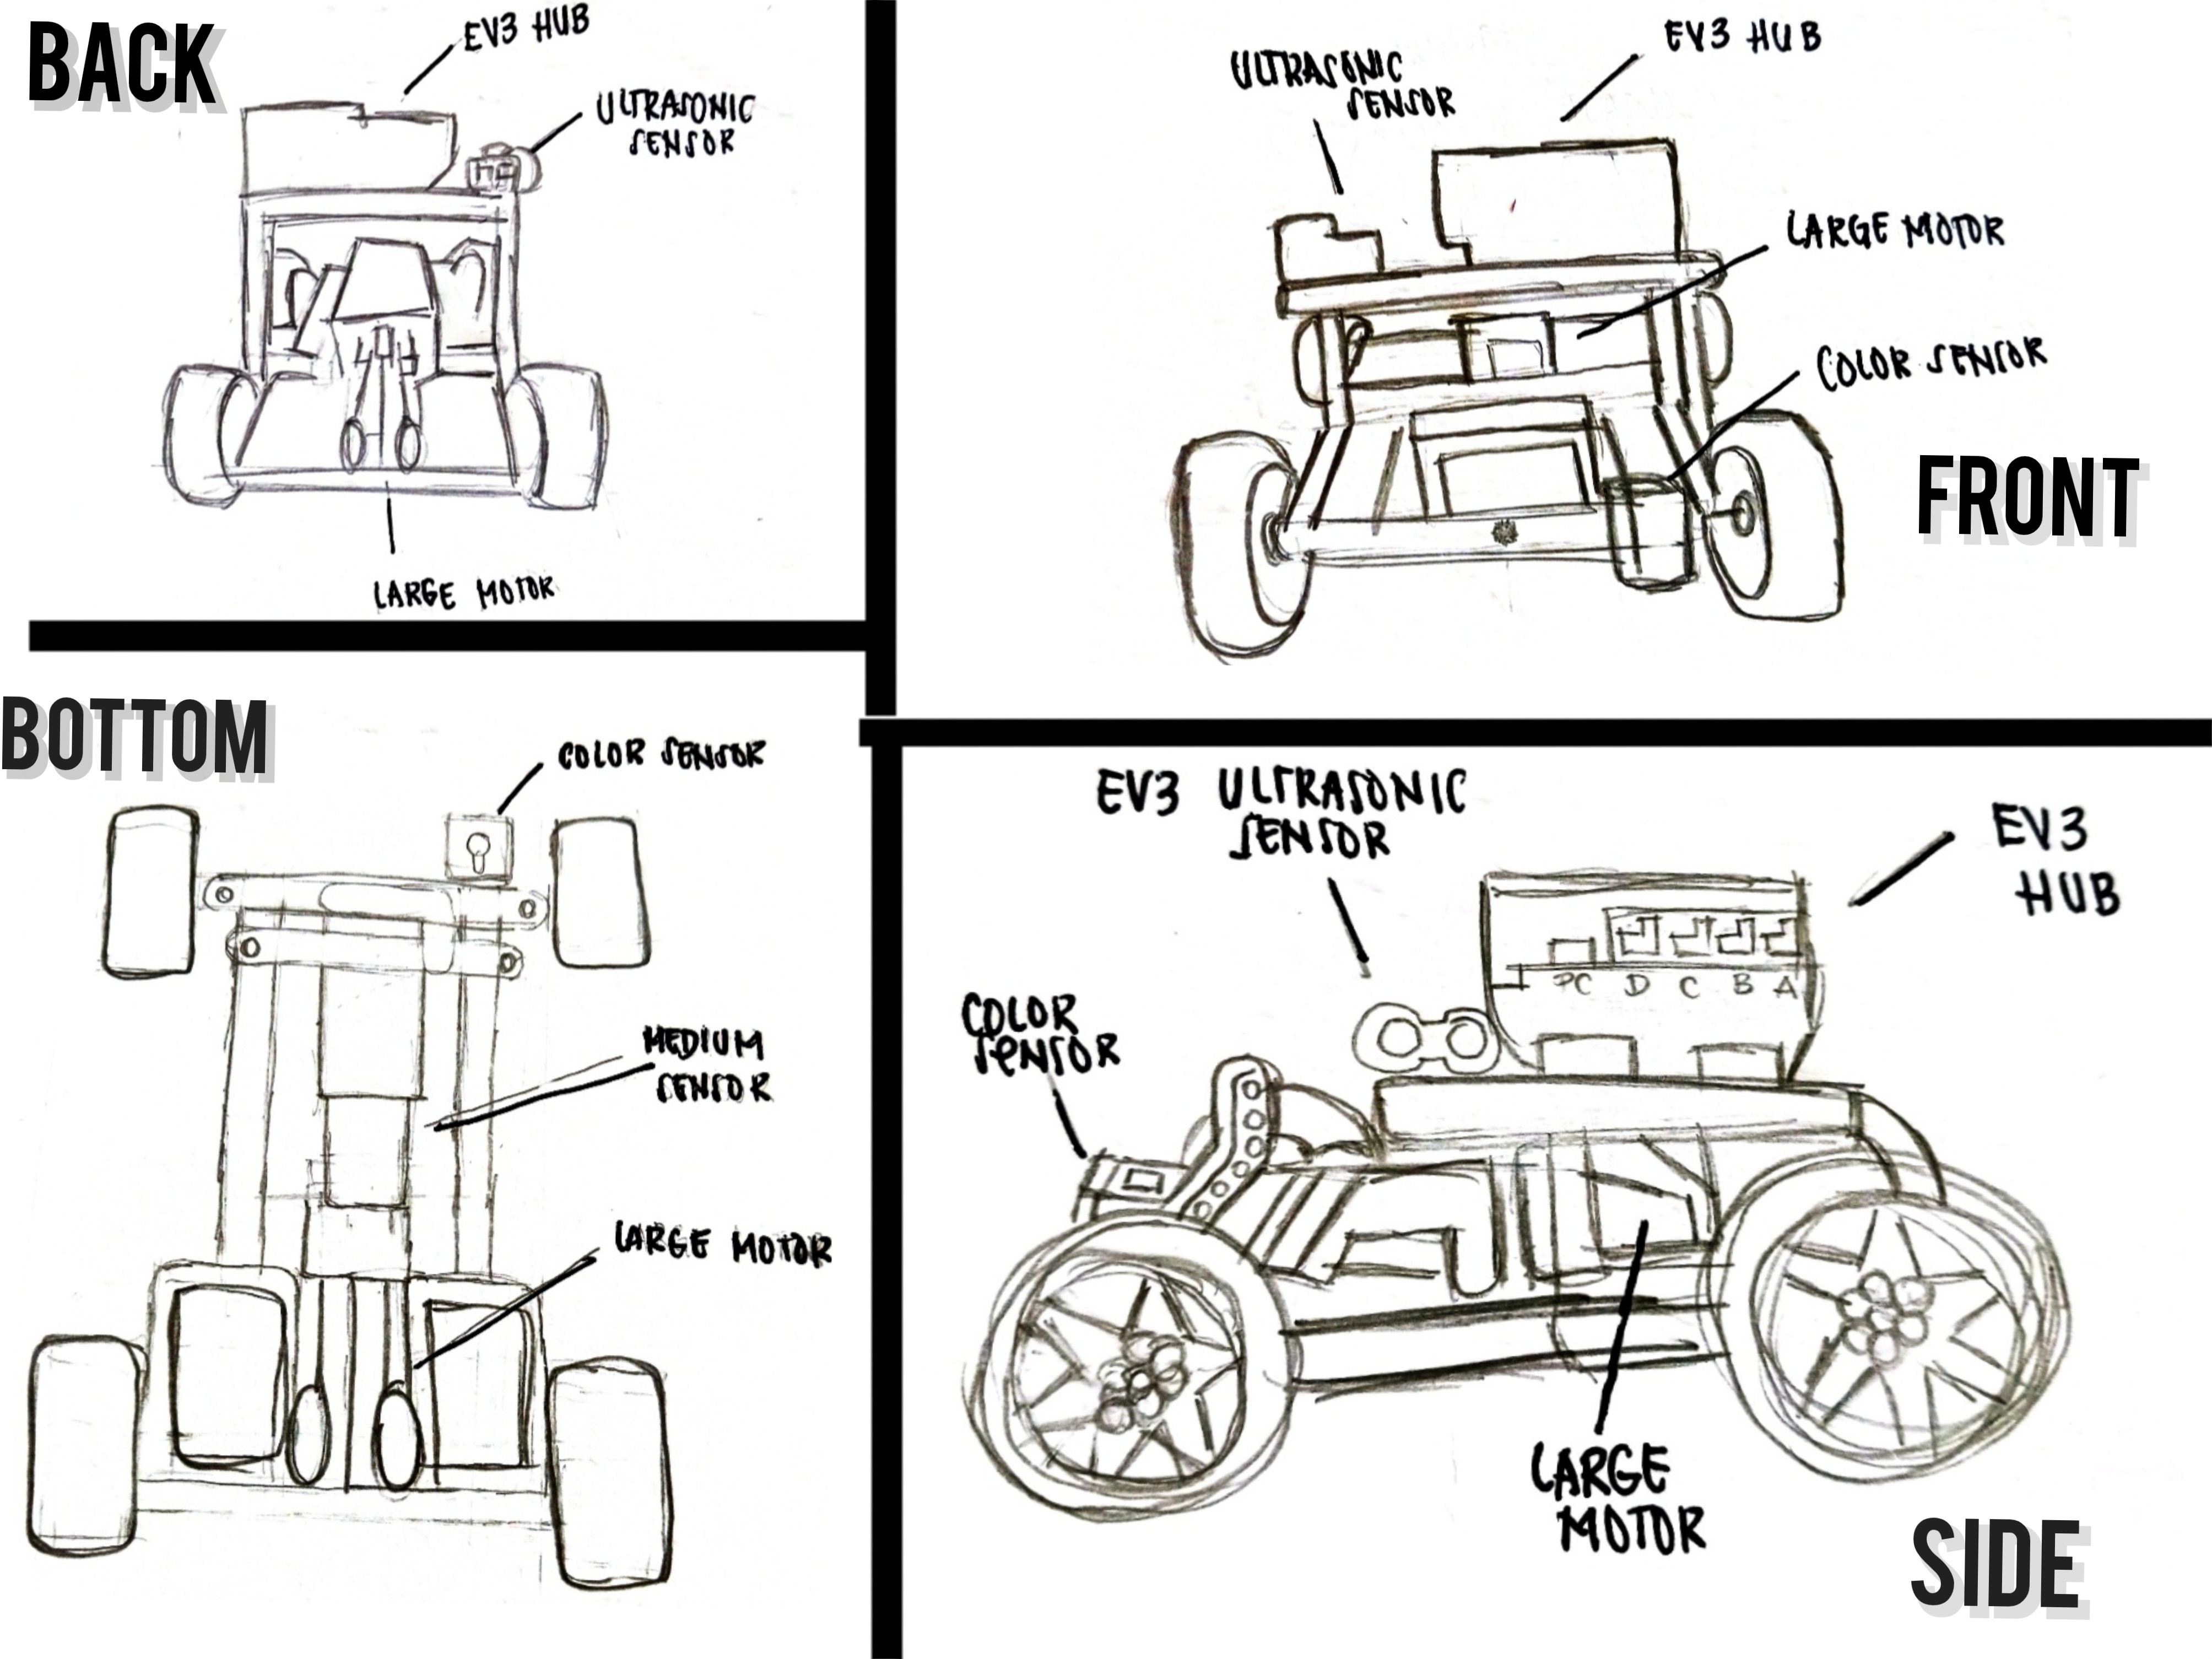 BACK
EV3 HUB
ULTRASONIC
SENSOR
LARGE MOTOR
ULTRASONIC
SENSOR
EV3 HUB
LARGE MOTOR
COLOR SENSOR
FRONT
BOTTOM
COLOR SENSOR
MEDIUM
SENSOR
LARGE MOTOR
EV3 ULTRASONIC
SENSOR
EV3
HUB
COLOR
SENSOR
PC D C B A
LARGE
MOTOR
SIDE